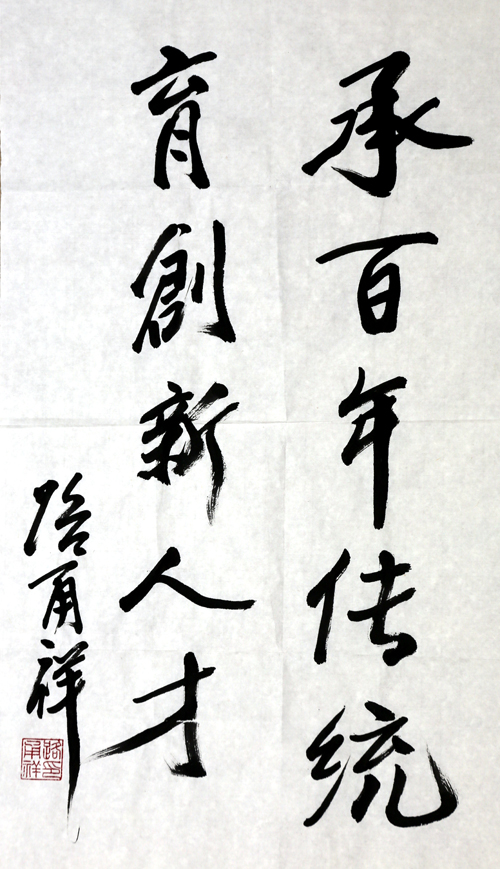 承百年传统
育創新人才
路甬祥
路甬祥印